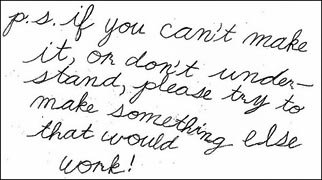 p.s. if you can't make
it, or don't under-
stand, please try to
make something else
that would
work!